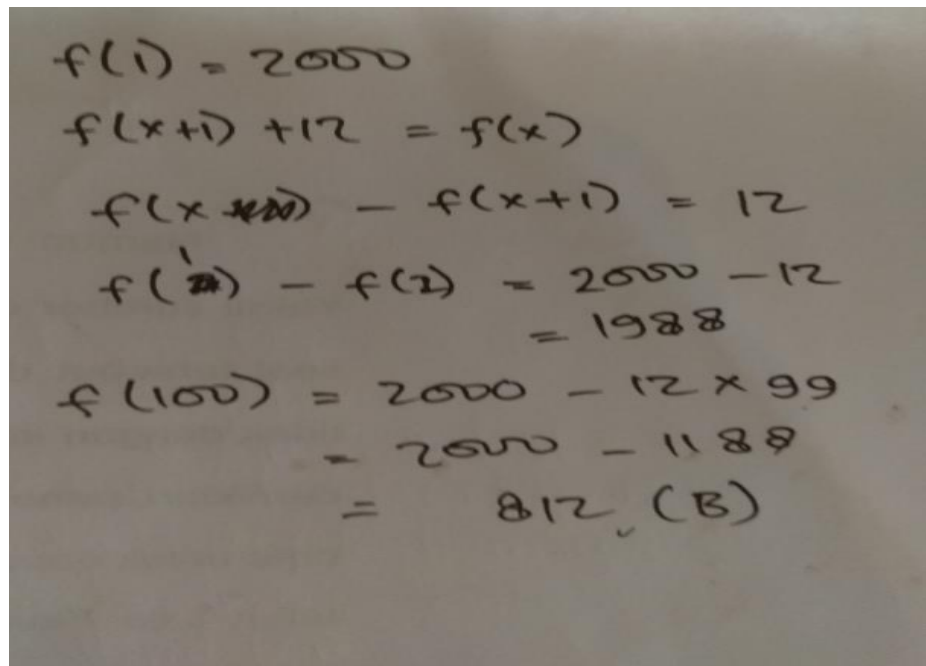 f(1) = 2000
f(x+1) +12 = f(x)
f(x) - f(x+1) = 12
f(1) - f(2) = 2000 - 12
= 1988
f(100) = 2000 - 12 × 99
= 2000 - 1188
= 812 (B)